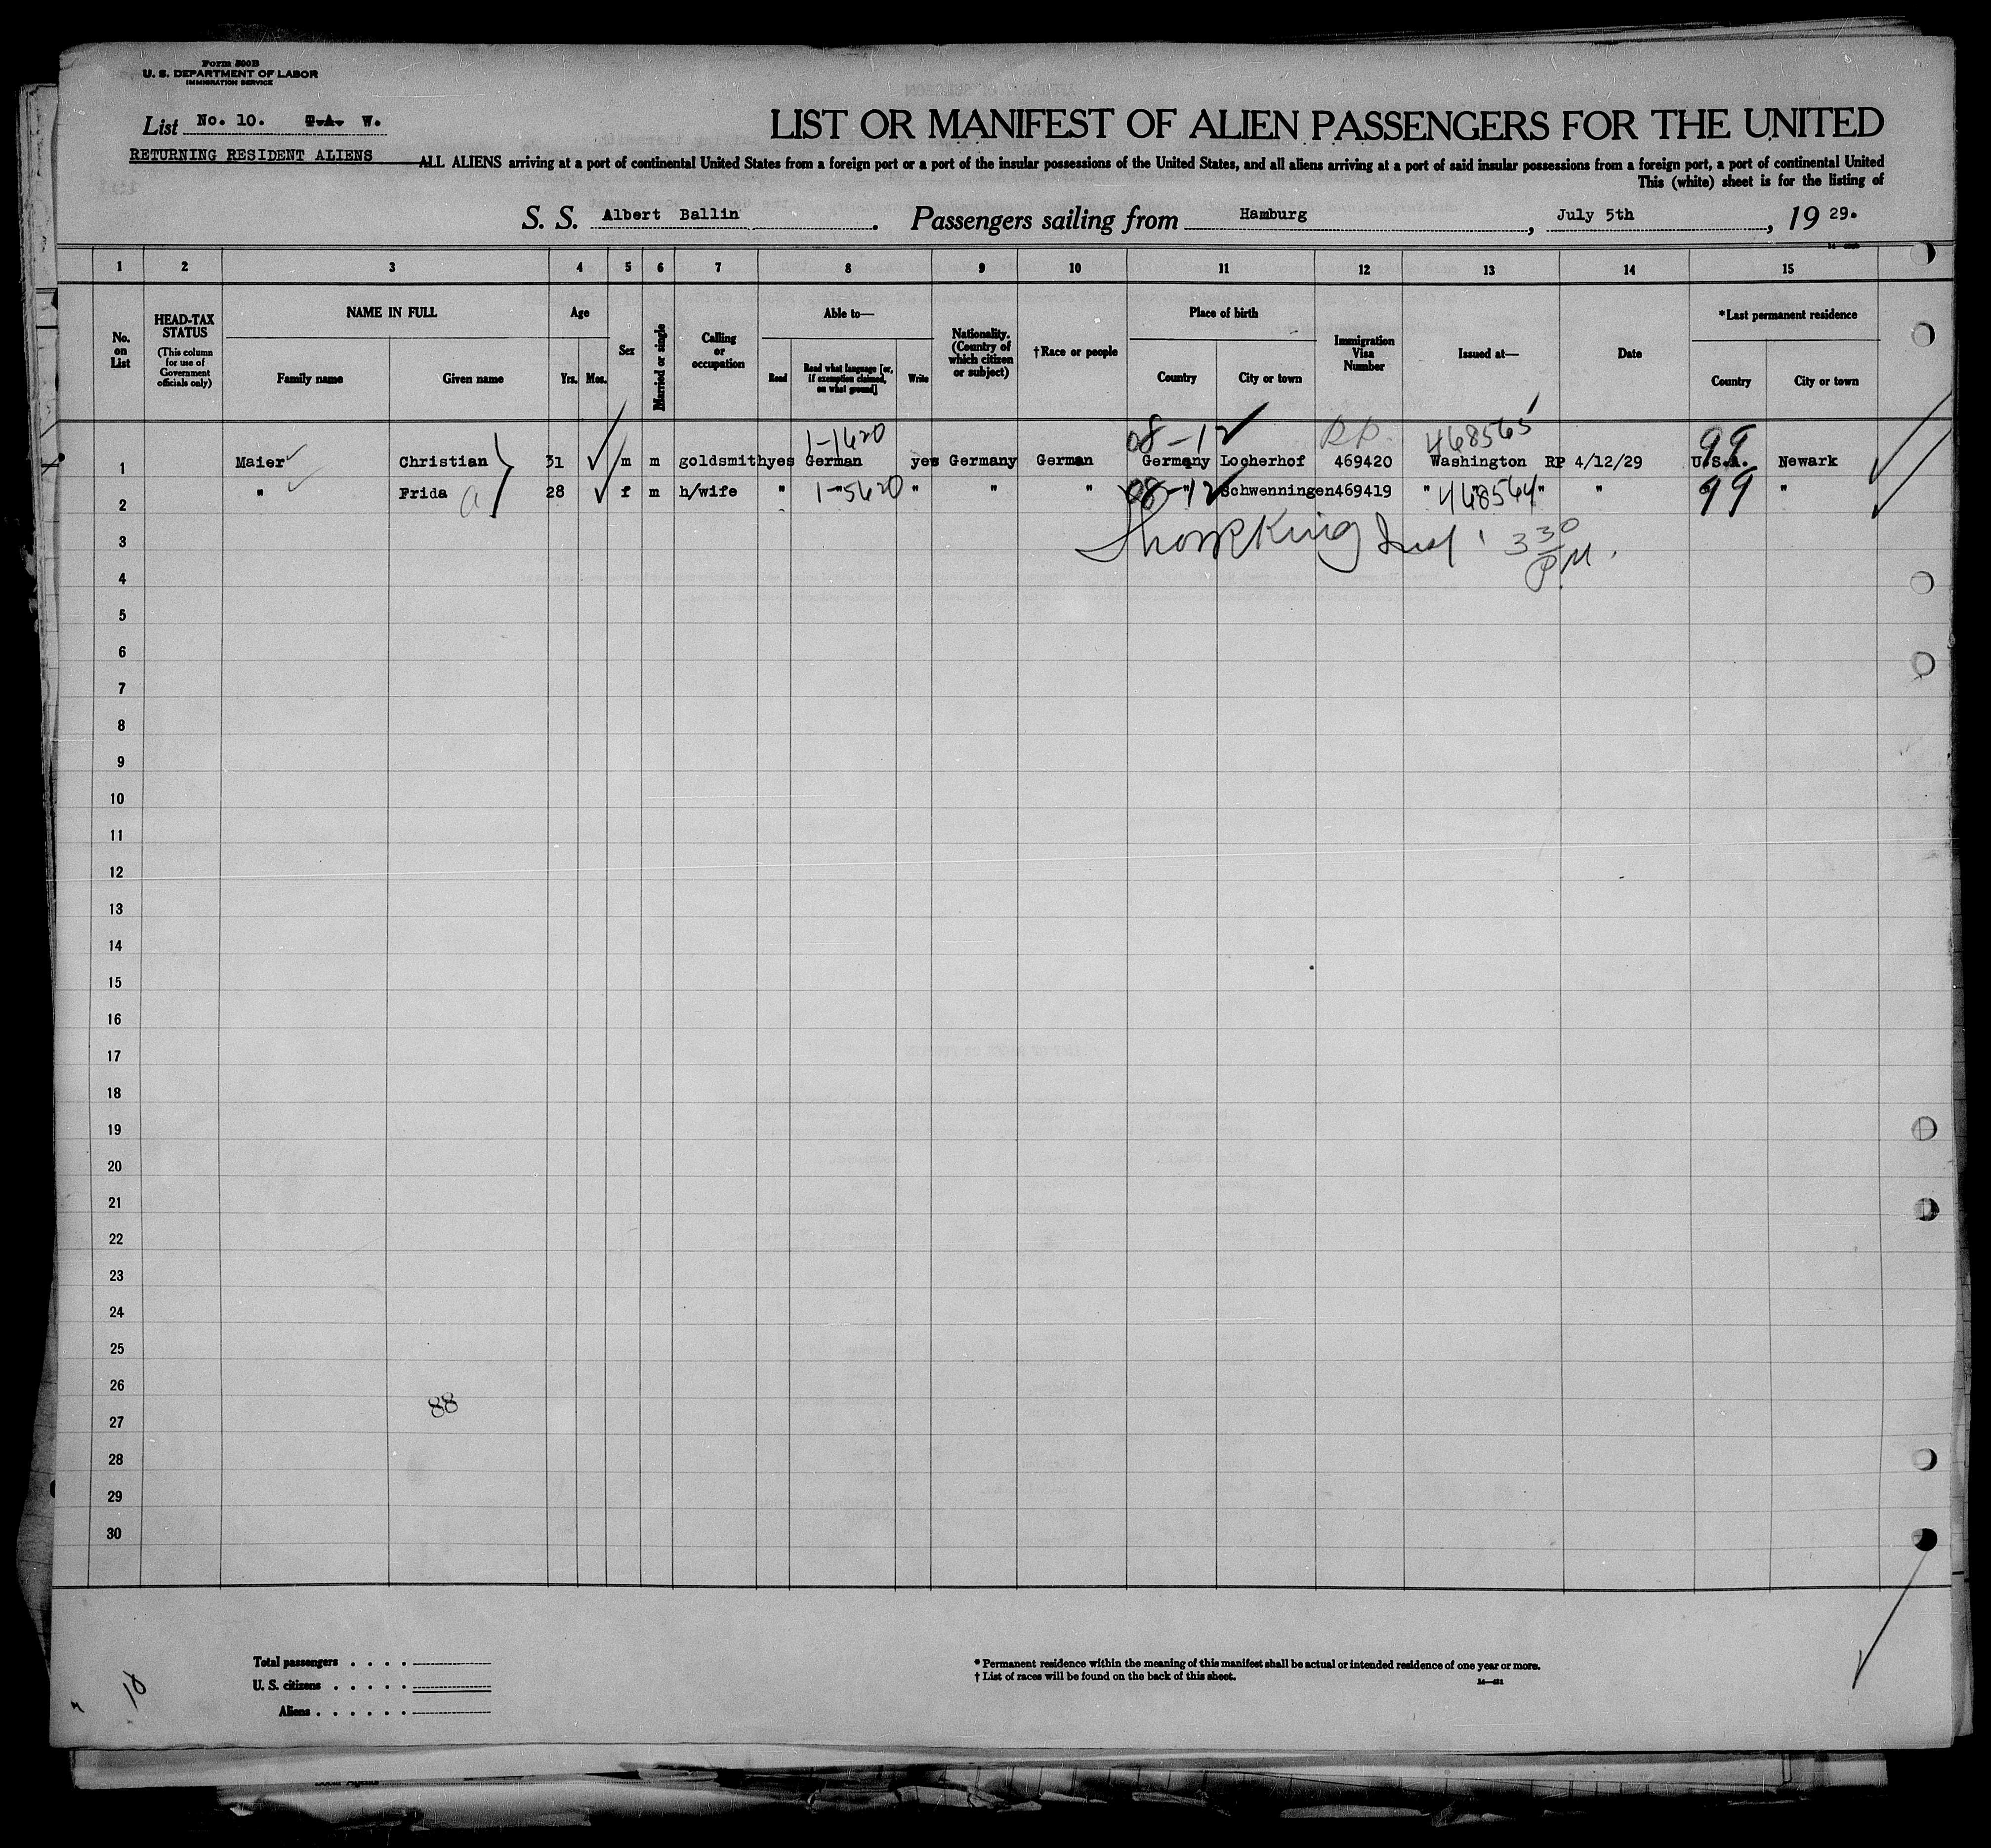 Form 500B
U. S. DEPARTMENT OF LABOR
IMMIGRATION SERVICE
List No. 10. T.A. W.
LIST OR MANIFEST OF ALIEN PASSENGERS FOR THE UNITED
RETURNING RESIDENT ALIENS
ALL ALIENS arriving at a port of continental United States from a foreign port or a port of the insular possessions of the United States, and all aliens arriving at a port of said insular possessions from a foreign port, a port of continental United
This (white) sheet is for the listing of
S. S. Albert Ballin. Passengers sailing from Hamburg, July 5th, 1929.
1 2 3 4 5 6 7 8 9 10 11 12 13 14 15
No. on List
HEAD-TAX STATUS
(This column for use of Government officials only)
NAME IN FULL
Family name Given name
Age
Yrs. Mos.
Sex
Married or single
Calling or occupation
Able to—
Read
Read what language [or, if exemption claimed, on what ground]
Write
Nationality. (Country of which citizen or subject)
†Race or people
Place of birth
Country City or town
Immigration Visa Number
Issued at—
Date
*Last permanent residence
Country City or town
1-1620 08-12 RP. 468565 99
1 Maier Christian 31 m m goldsmith yes German yes Germany German Germany Locherhof 469420 Washington RP 4/12/29 U.S.A. Newark
2 " Frida 28 f m h/wife " " " " " " Schwenningen 469419 " " " " "
a 1-5620 08-12 468564 99
King 3 30 P.M.
3
4
5
6
7
8
9
10
11
12
13
14
15
16
17
18
19
20
21
22
23
24
25
26
88
27
28
29
30
Total passengers
U. S. citizens
Aliens
10
* Permanent residence within the meaning of this manifest shall be actual or intended residence of one year or more.
† List of races will be found on the back of this sheet.